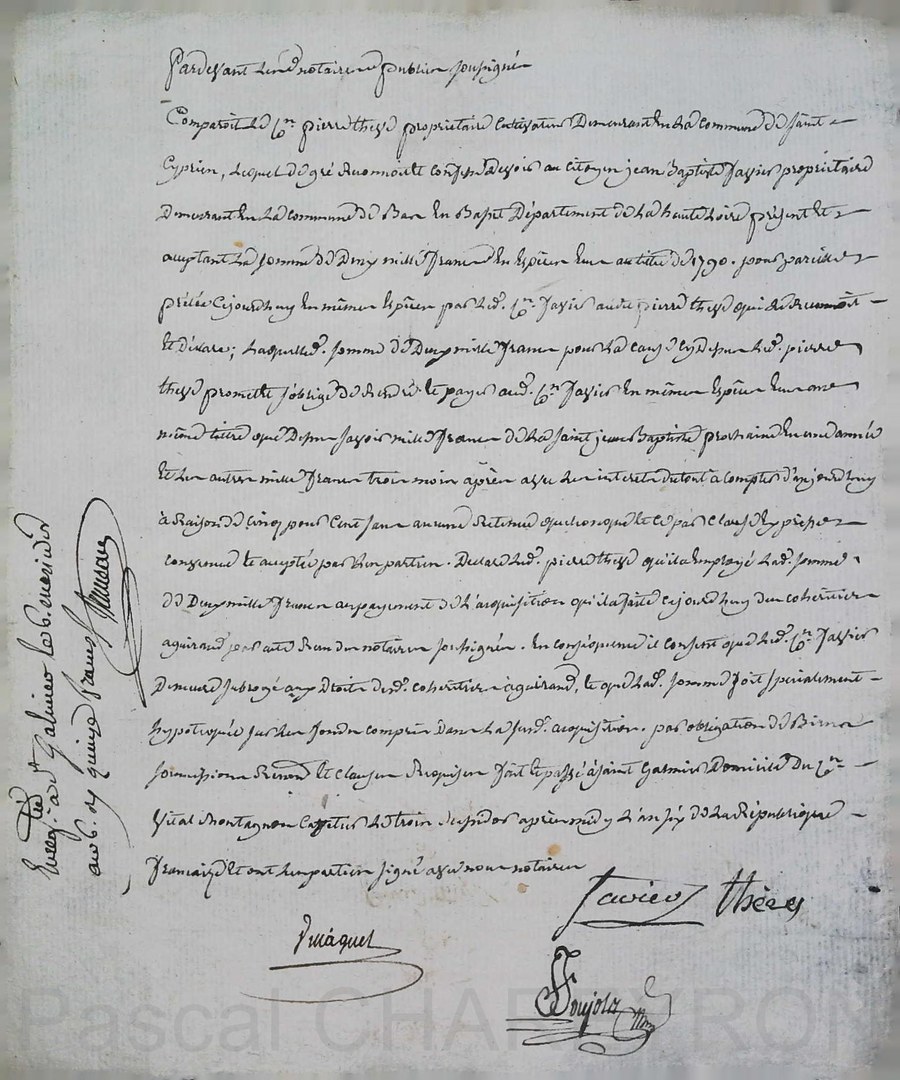 Pardevant les notaires publics soussignés
Comparoit le Cen. pierre theve propriétaire cultivateur Demeurant En la commune de Saint
Cyprien, lequel de gré Reconnoit et confesse Devoir au citoyen jean Baptiste Javier propriétaire
Demeurant En La commune de Bas En Basset Département de La haute Loire présent et
acceptant La somme de Deux mille francs En Espèces au titre de 1790. pour pareille
prêtée cejourdhuy En mêmes Espèces par led. Cen. Javier aud. pierre theve qui le Reconnoit
et déclare; Laquelle d. somme de Deux mille francs pour La cause cydessus Led. pierre
theve promet et s'oblige de Rendre et payer aud. Cen. Javier En mêmes Espèces
même titre que Dessus savoir mille francs de La Saint jean Baptiste prochaine En une année
et Les autres mille francs trois mois après avec Les interets du tout à compter d'aujourdhuy
à Raison de cinq pour Cent sans aucune Retenue quelconque et ce par clause Expresse
convenue et acceptée par Les parties. Déclare Led. pierre theve qu'il a Employé Lad. somme
de Deux mille francs au payement de L'acquisition qu'il a faite cejourdhuy des cohéritiers
aguiraud par acte Reçu des notaires soussignés. En conséquence il consent que Led. Cen. Javier
Demeure subrogé aux Droits desd. cohéritiers aguiraud, et que Lad. somme soit spécialement
hypotéquée sur Les fonds compris Dans La susd. acquisition. par obligation de Biens
soumissions Renonc. et clauses Requises fait et passé à saint Galmier Domicile du Cen.
Vital Montagnon Caffetier Le trois après midy L'an six de La République
française et ont Les parties signé avec nous notaires
Javier theve
Poujola
Enreg. à St Galmier le 6. messidor
an 6. Rx quinze francs